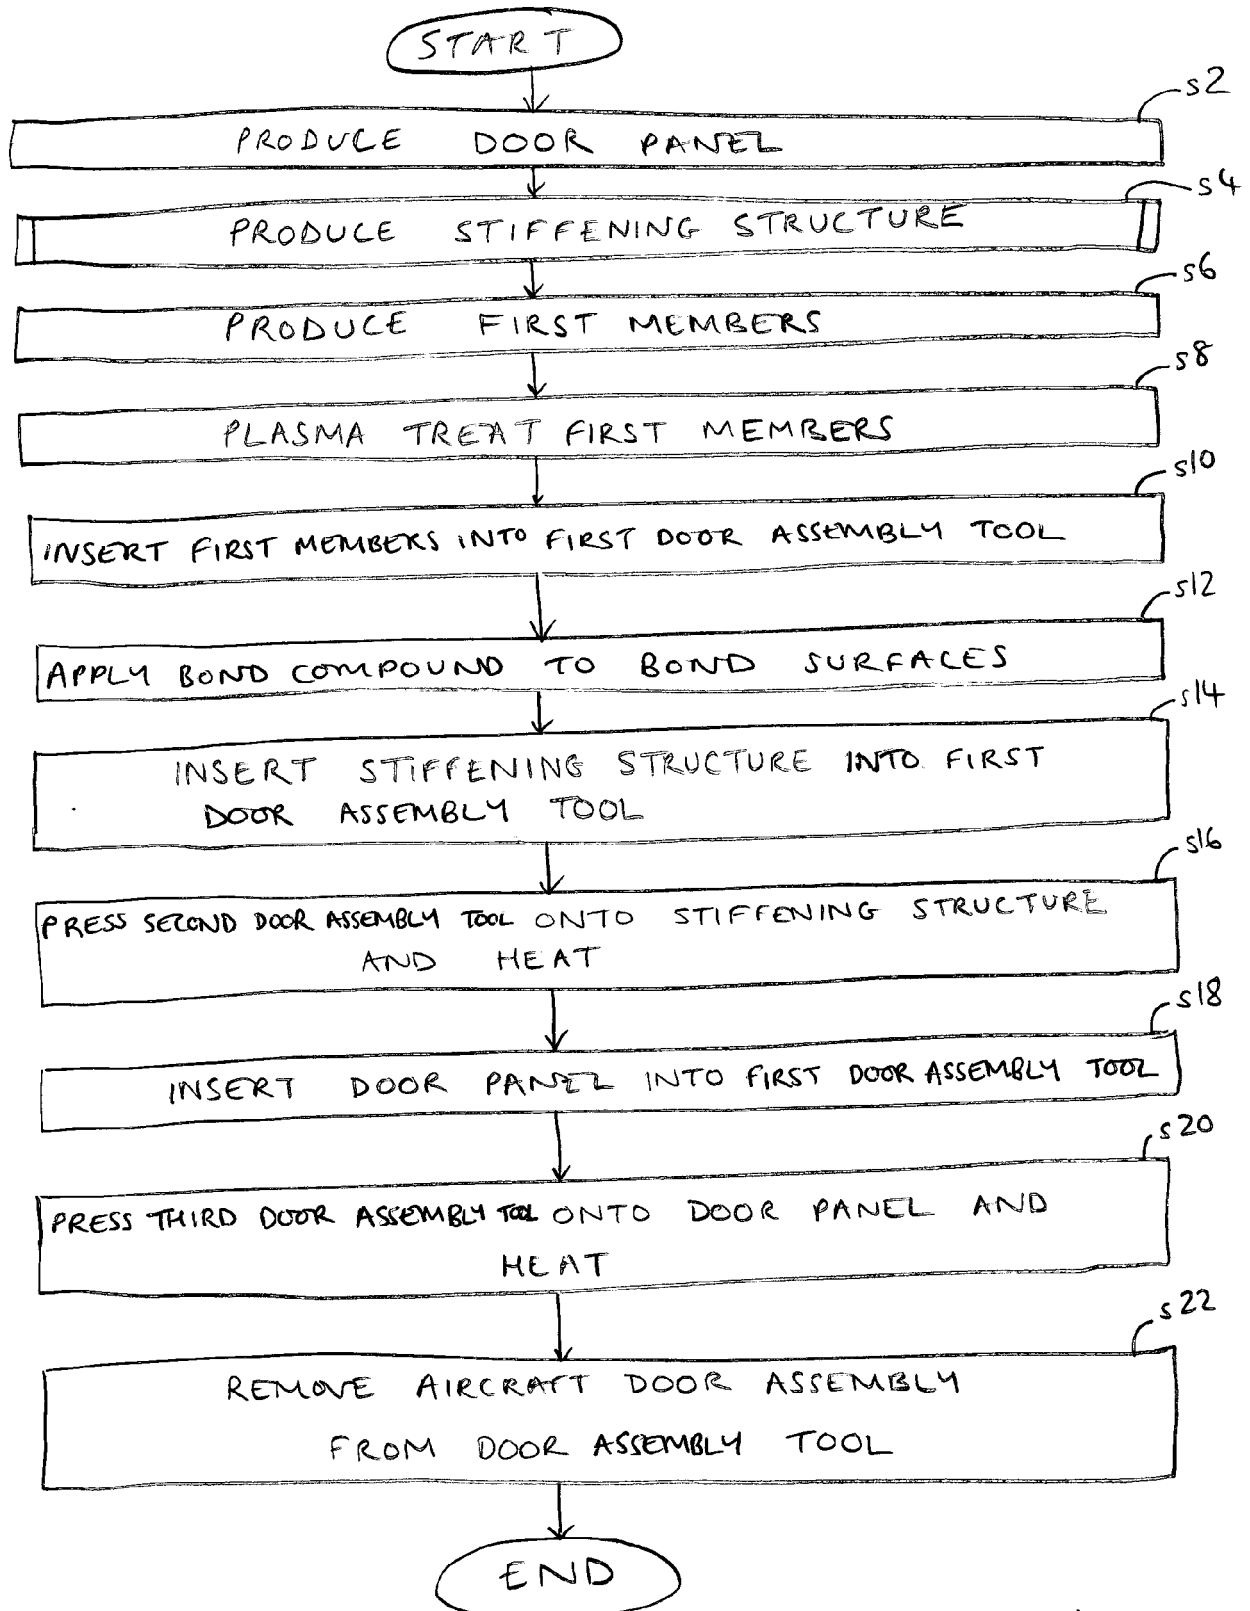 START
s2
PRODUCE DOOR PANEL
s4
PRODUCE STIFFENING STRUCTURE
s6
PRODUCE FIRST MEMBERS
s8
PLASMA TREAT FIRST MEMBERS
s10
INSERT FIRST MEMBERS INTO FIRST DOOR ASSEMBLY TOOL
s12
APPLY BOND COMPOUND TO BOND SURFACES
s14
INSERT STIFFENING STRUCTURE INTO FIRST
DOOR ASSEMBLY TOOL
s16
PRESS SECOND DOOR ASSEMBLY TOOL ONTO STIFFENING STRUCTURE
AND HEAT
s18
INSERT DOOR PANEL INTO FIRST DOOR ASSEMBLY TOOL
s20
PRESS THIRD DOOR ASSEMBLY TOOL ONTO DOOR PANEL AND
HEAT
s22
REMOVE AIRCRAFT DOOR ASSEMBLY
FROM DOOR ASSEMBLY TOOL
END